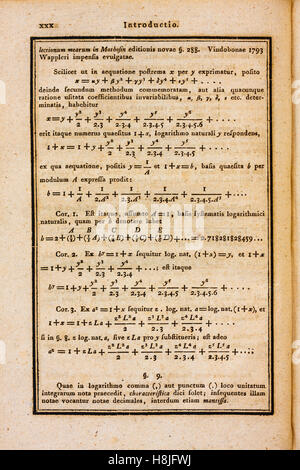 xxx Introductio.
lectionum mearum in Mathesin editionis novae §. 288. Vindobonae 1793
Wappleri impensis evulgatae.
Scilicet ut in aequatione postrema x per y exprimatur, posito
x = αy + βy² + γy³ + δy⁴ + εy⁵ + . . . .
deinde secundum methodum commemoratam, aut alia quacunque
ratione usitata coefficientibus invariabilibus, α, β, γ, δ, ε etc. deter-
minatis, habebitur
x = y + y²/2 + y³/2.3 + y⁴/2.3.4 + y⁵/2.3.4.5 + y⁶/2.3.4.5.6 + . . . .
erit itaque numerus quaesitus 1+x, logarithmo naturali y respondens,
1 + x = 1 + y + y²/2 + y³/2.3 + y⁴/2.3.4 + y⁵/2.3.4.5 + . . . .
ex qua aequatione, positis y = 1/A et 1+x = b, basis quaesita b per
modulum A expressa prodit:
b = 1 + 1/A + 1/2.A² + 1/2.3.A³ + 1/2.3.4.A⁴ + 1/2.3.4.5.A⁵ + . . . .
Cor. 1. Est itaque, assumto A = 1, basis systematis logarithmici
naturalis, quam per b denotare lubet
A B C D E
b = 2 + (½) + (⅓A) + (¼B) + (⅕C) + (⅙D) + . . . = 2.718281828459...
Cor. 2. Ex bʸ = 1+x sequitur log. nat. (1+x) = y, et 1+x
= 1 + y + y²/2 + y³/2.3 + y⁴/2.3.4 + . . . .; est itaque
bʸ = 1 + y + y²/2 + y³/2.3 + y⁴/2.3.4 + y⁵/2.3.4.5 + y⁶/2.3.4.5.6 + . . . .
Cor. 3. Ex aᶻ = 1+x sequitur z . log. nat. a = log. nat. (1+x), et
1 + x = 1 + zLa + z²L²a/2 + z³L³a/2.3 + z⁴L⁴a/2.3.4 + . . . .
si in §. 8. log. nat. a, sive zLa pro y substitueris; est adeo
aᶻ = 1 + zLa + z²L²a/2 + z³L³a/2.3 + z⁴L⁴a/2.3.4 + . . . .
§. 9.
Quae in logarithmo comma (,) aut punctum (.) loco unitatum
integrarum nota praecedit, characteristica dici solet; insequentes illam
notae vocantur notae decimales, interdum etiam mantissa.
alamy
H8JFWJ
www.alamy.com